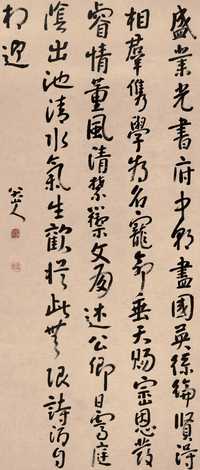 盛業光書府中朝盡國英絲綸賢得
相羣儁學為名寵命垂天錫崇恩發
睿情薰風清禁籞文殿述公卿日霽庭
陰出池清水氣生歡娛此無限詩酒自
相迎
八大山人